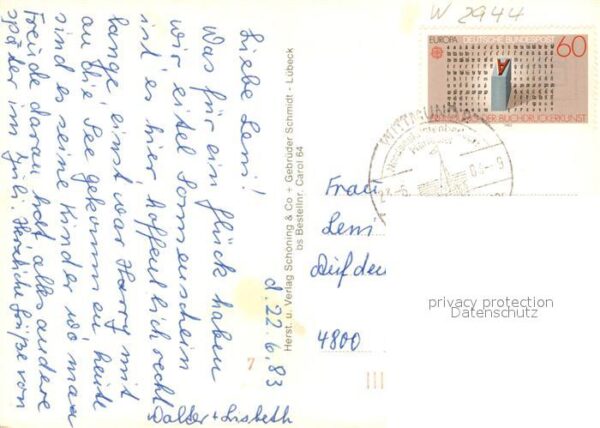 W 2944
EUROPA DEUTSCHE BUNDESPOST 60
DER BUCHDRUCKERKUNST
WITTMUND
d. 22.6.83
Liebe Leni!
Was für ein Glück haben
wir eitel Sonnenschein
ist es hier hoffentlich recht
lange einst war Harry mit
an die See gekommen heute
sind es seine Kinder wo man
Freude daran hat alles andere
später im Juli. Herzliche Grüße von
Walter + Lisbeth
Herst. u. Verlag Schöning & Co + Gebrüder Schmidt - Lübeck
bs Bestellnr. Carol 64
Frau
Leni
Auf der
4800
privacy protection
Datenschutz
7